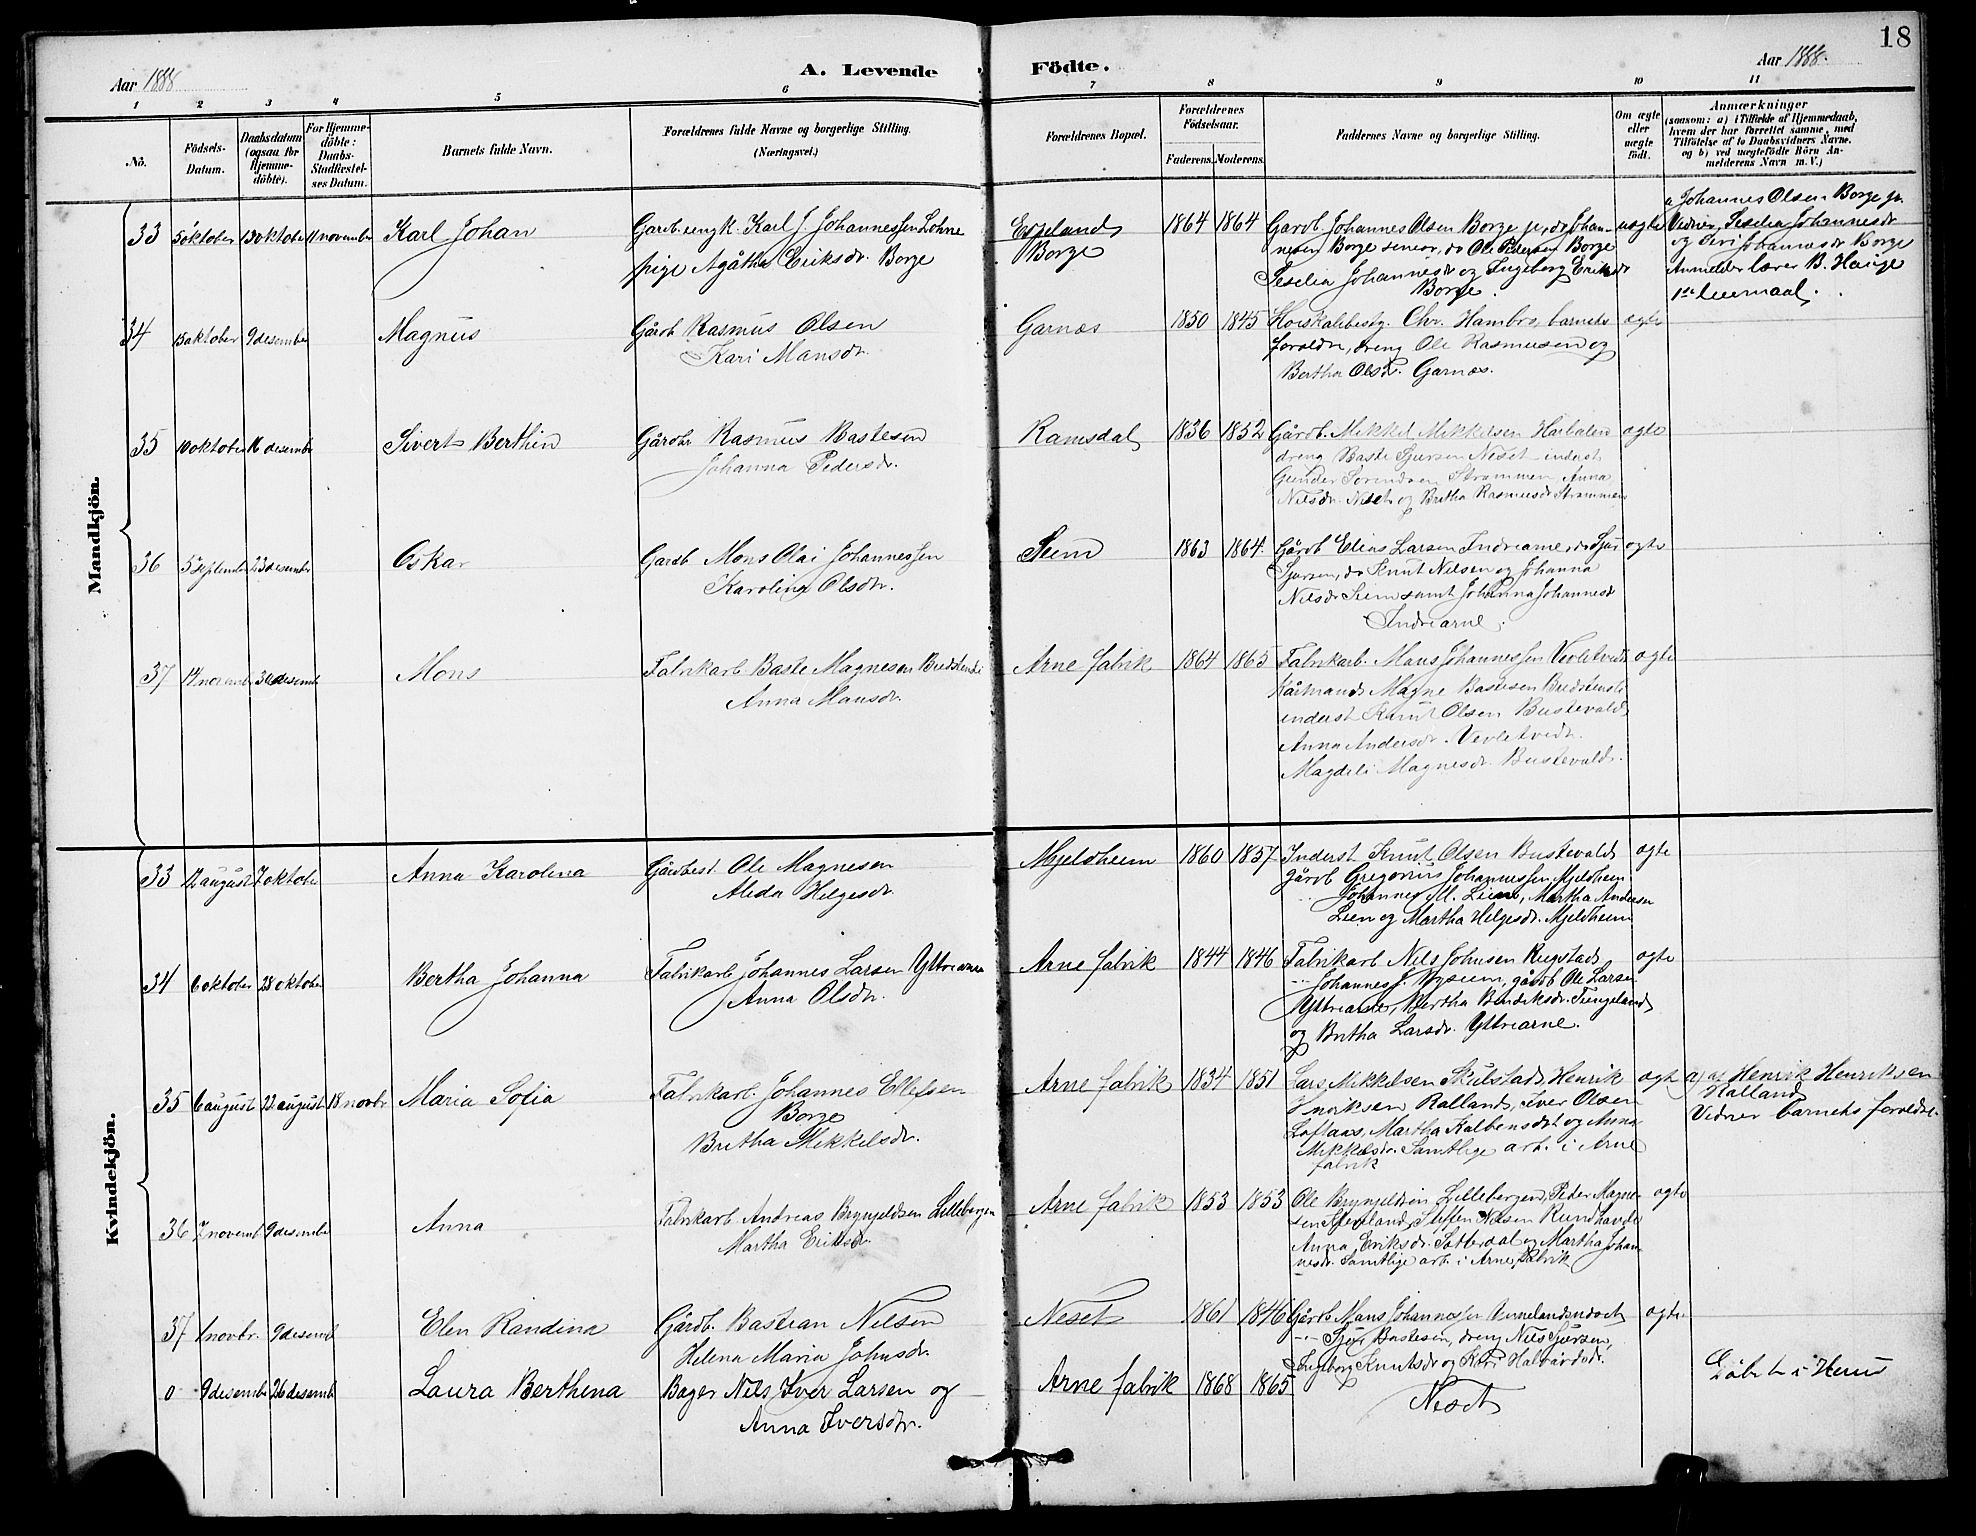 18
Aar 1888
A. Levende
Födte.
Aar 1888.
1 2 3 4 5 6 7 8 9 10 11
No.
Födsels-
Datum.
Daabsdatum
(ogsaa for
Hjemme-
döbte).
For Hjemme-
döbte:
Daabs-
Stadfæstel-
ses Datum.
Barnets fulde Navn.
Forældrenes fulde Navne og borgerlige Stilling.
(Næringsvei.)
Forældrenes Bopæl.
Forældrenes
Födselsaar.
Faderens. Moderens.
Faddernes Navne og borgerlige Stilling.
Om ægte
eller
uægte
födt.
Anmærkninger
(saasom: a) i Tilfælde af Hjemmedaab,
hvem der har forrettet samme, med
Tilföielse af to Daabsvidners Navne,
og b) ved uægtefödte Börn An-
melderens Navn m. V.)
Mandkjön.
33 5 oktober 13 oktober 11 november Karl Johan
Gardb. eng k. Karl J. Johannessen Lohne
pige Agåtha Eriksdr. Borge
Espeland
Borge
1864 1864
Gardb. Johannes Olsen Borge jr, do Johan-
nesen Borge senior, do Ole Pedersen Borge
Seselia Johannesdr og Ingeborg Eriksdr
Borge.
uægte
a Johannes Olsen Borge jr.
Vidner Seselia Johannesdr
og Siri Johannesdr Borge
Anmelder lærer B. Hauge
1ste leiermaal.
34 15 oktober 9 desember Magnus
Gårdb Rasmus Olsen
Kari Mansdr.
Garnæs
1850 1845
Chr. Hambro, barnets
foreldre, dreng Ole Rasmussen og
Bertha Olsdr. Garnæs.
ægte
35 10 oktober 16 desember Sivert Berthin
Gårdbr Rasmus Bastesen
Johanna Pedersdr.
Ramsdal
1836 1852
Gårdb. Mikkel Mikkelsen
dreng Baste Sjursen Neset inderst
Gunder Sorendsen Strommen Anna
Nilsdr. Neset og Britha Rasmusdr Strommen
ægte
36 5 September 23 desember Oskar
Gardb Mons Olai Johannessen
Karolina Olsdr.
Seim
1863 1864.
Gårdb Elias Larsen Indrearne, do Sjur
Sjursen, do Knut Nilsen og Johanna
Nilsdr Seim samt Johanna Johannesdr
Indrearne.
ægte
37 14 novemb 30 desemb Mons
Fabrikarb. Baste Magnesen Bredstenli
Anna Mansdr.
Arne fabrik
1864 1865
Fabrikarb. Mons Johannessen Vevletvedt
Kårmand Magne Bastesen Bredstenli
inderst Knut Olsen Bustevold,
Anna Andersdr. Vevletvedt.
Magdeli Magnesdr. Bustevold.
ægte
Kvindekjön.
33 12 august 7 oktober Anna Karolina
Gårdbest. Ole Magnesen
Alida Helgesdr.
Mjeldheim
1860 1857
Inderst Knut Olsen Bustevold
gårdb Gregorius Johannessen Mjeldheim
Johannes M. Leine, Martha Andersen
Leen og Martha Helgesdr. Mjeldheim
ægte
34 6 oktober 28 oktober Bertha Johanna
Fabrikarb Johannes Larsen Yttrearne
Anna Olsdr.
Arne fabrik
1844 1846
Fabrikarb Nils Johnsen Rupstad
Johannes J. gårdb Ole Larsen
Yttrearne, Bertha Bendiksdr.
og Britha Larsdr. Yttrearne.
ægte
35 6 august 22 august 18 novbr Maria Sofia
Fabrikarb. Johannes Ellefsen
Borge
Britha Mikkelsdr.
Arne fabrik
1834 1851
Lars Mikkelsen Skulstad, Henrik
Henriksen Kalland, Iver Olsen
Loftaas, Martha Kolbensdr og Anna
Mikkelsdr. Samtlige arb. i Arne
fabrik
ægte
a, af Henrik Henriksen
Kalland
Vidner barnets foreldre.
36 7 novemb 9 desember Anna
Fabrikarb Andreas Brynjeldsen Lillebergen
Martha Eriksdr.
Arne fabrik
1853 1853
Ole Brynjeldsen Lillebergen, Peder Magne-
sen Steffen Nilsen Rundhovde
Anna Eriksdr. Sætterdal og Martha Johan-
nesdr. Samtlige arb. i Arne fabrik
ægte
37 1 novbr. 9 desemb Elen Randina
Gårdb. Bastian Nilsen
Helena Maria Johnsdr.
Neset
1861 1846
Gårdb. Mans Johannessen
Sjur Bastesen, dreng Nils Sjursen,
Ingeborg Knutsdr og Kari Halvårdsdr.
Neset
ægte
0 9 desemb 26 desemb Laura Berthina
Bager Nils Iver Larsen og
Anna Iversdtr.
Arne fabrik
1868 1865
Döbt i Haus